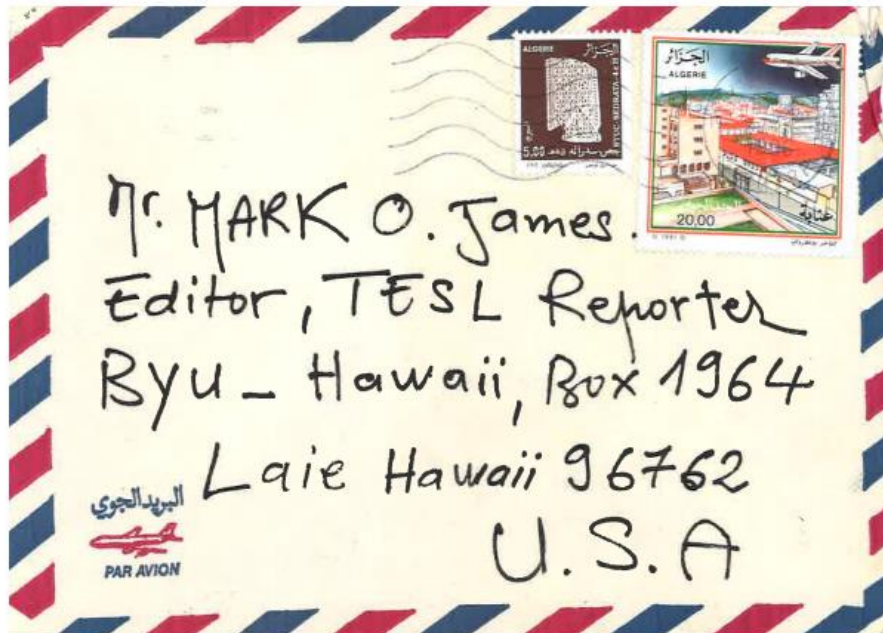 ALGERIE الجزائر
STUC-SEDRATA-4eH
5,00
الجزائر
ALGERIE
20,00
عنابة
Mr. MARK O. James.
Editor, TESL Reporter
BYU - Hawaii, Box 1964
Laie Hawaii 96762
U.S.A
البريد الجوي
PAR AVION